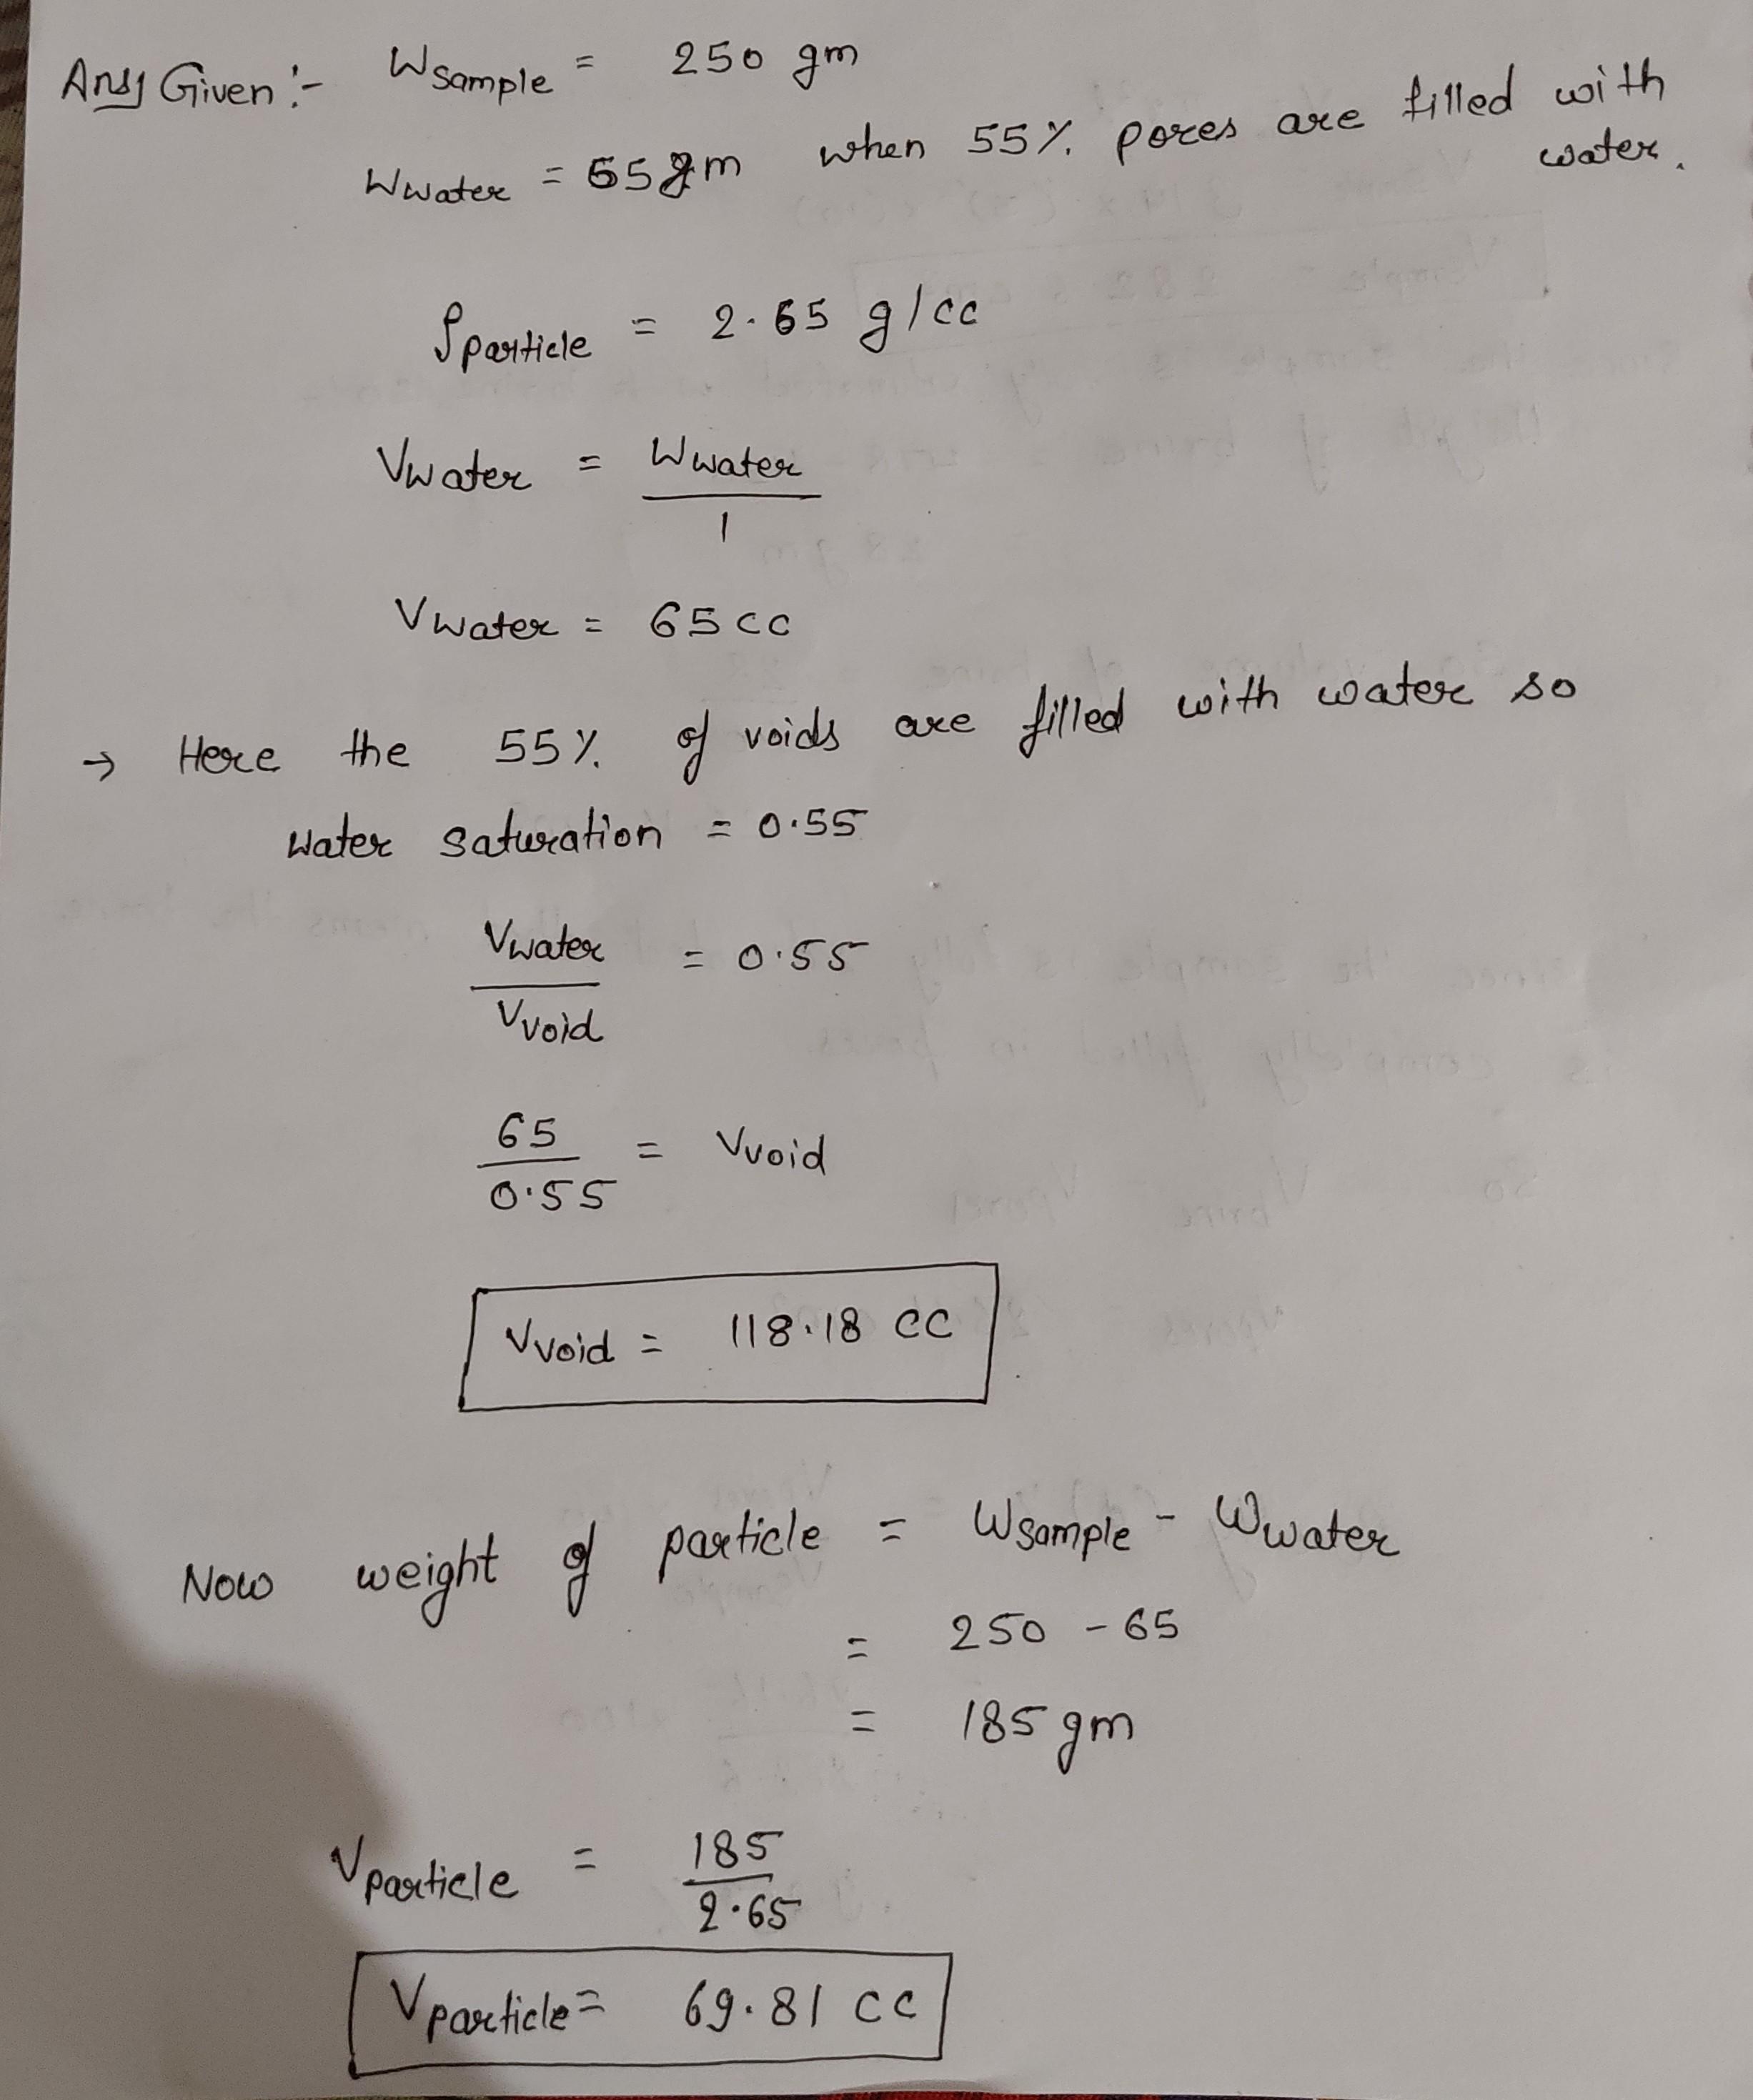 Ans Given :- Wsample = 250 gm
Wwater = 65 gm when 55% pores are filled with
water.
ρparticle = 2.65 g/cc
Vwater = Wwater
1
Vwater = 65 cc
→ Here the 55% of voids are filled with water so
water saturation = 0.55
Vwater = 0.55
Vvoid
65 = Vvoid
0.55
Vvoid = 118.18 cc
Now weight of particle = Wsample - Wwater
= 250 - 65
= 185 gm
Vparticle = 185
2.65
Vparticle = 69.81 cc